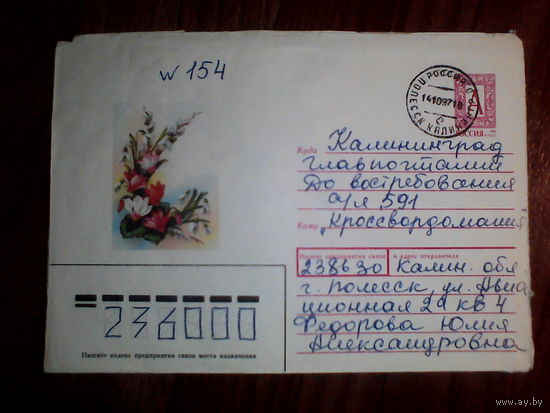 N 154
ПОЛЕССК КАЛИНИНГР. ОБЛ.
РОССИЯ
14109718
А
РОССИЯ
Куда Калининград
главпочтамт
До востребования
а/я 591
Кому „Кроссвордомания"
Индекс предприятия связи и адрес отправителя
238630 Калин. обл.
г. Полесск, ул. Авиа
ционная 29 кв 4
Федорова Юлия
Александровна
236000
Пишите индекс предприятия связи места назначения
www.ay.by